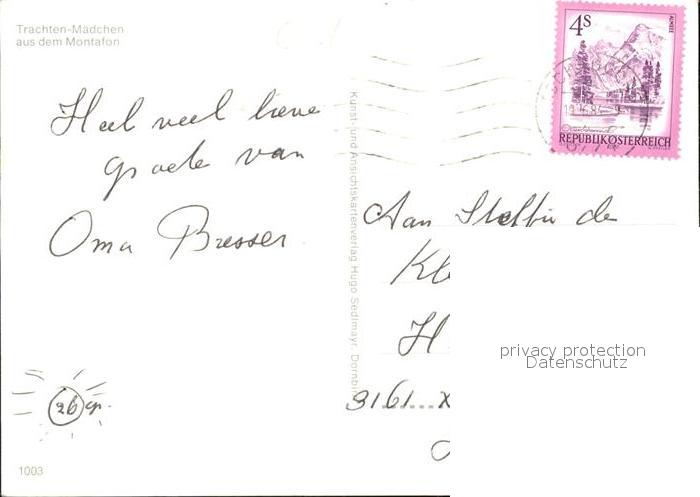 Trachten-Mädchen
aus dem Montafon
4s
ALMSEE
REPUBLIK ÖSTERREICH
Heel veel lieve
groete van
Oma Bresser
Kunst- und Ansichtskartenverlag Hugo Sedlmayr, Dornbi
Aan de
Kl
H
3161 X
privacy protection
Datenschutz
26 gr.
1003